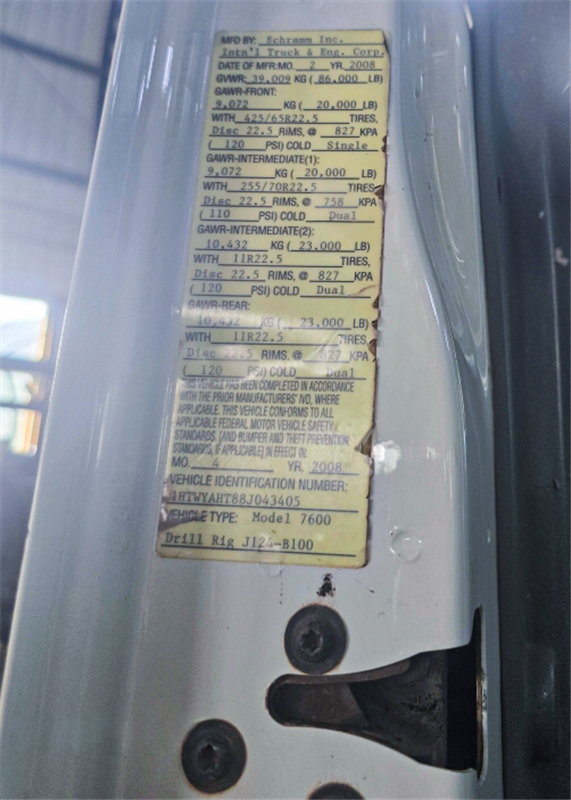 MFD BY: Schramm Inc.
Intn'l Truck & Eng. Corp.
DATE OF MFR: MO. 2 YR. 2008
GVWR: 39,009 KG ( 86,000 LB)
GAWR-FRONT:
9,072 KG ( 20,000 LB)
WITH 425/65R22.5 TIRES,
Disc 22.5 RIMS, @ 827 KPA
( 120 PSI) COLD Single
GAWR-INTERMEDIATE(1):
9,072 KG ( 20,000 LB)
WITH 255/70R22.5 TIRES,
Disc 22.5 RIMS, @ 758 KPA
( 110 PSI) COLD Dual
GAWR-INTERMEDIATE(2):
10,432 KG ( 23,000 LB)
WITH 11R22.5 TIRES,
Disc 22.5 RIMS, @ 827 KPA
( 120 PSI) COLD Dual
GAWR-REAR:
10,432 KG ( 23,000 LB)
WITH 11R22.5 TIRES,
Disc 22.5 RIMS, @ 827 KPA
( 120 PSI) COLD Dual
THIS VEHICLE HAS BEEN COMPLETED IN ACCORDANCE
WITH THE PRIOR MANUFACTURERS' IVD, WHERE
APPLICABLE. THIS VEHICLE CONFORMS TO ALL
APPLICABLE FEDERAL MOTOR VEHICLE SAFETY
STANDARDS, (AND BUMPER AND THEFT PREVENTION
STANDARDS, IF APPLICABLE) IN EFFECT IN:
MO. 4 YR. 2008
VEHICLE IDENTIFICATION NUMBER:
1HTWYAHT88J043405
VEHICLE TYPE: Model 7600
Drill Rig J124-B100